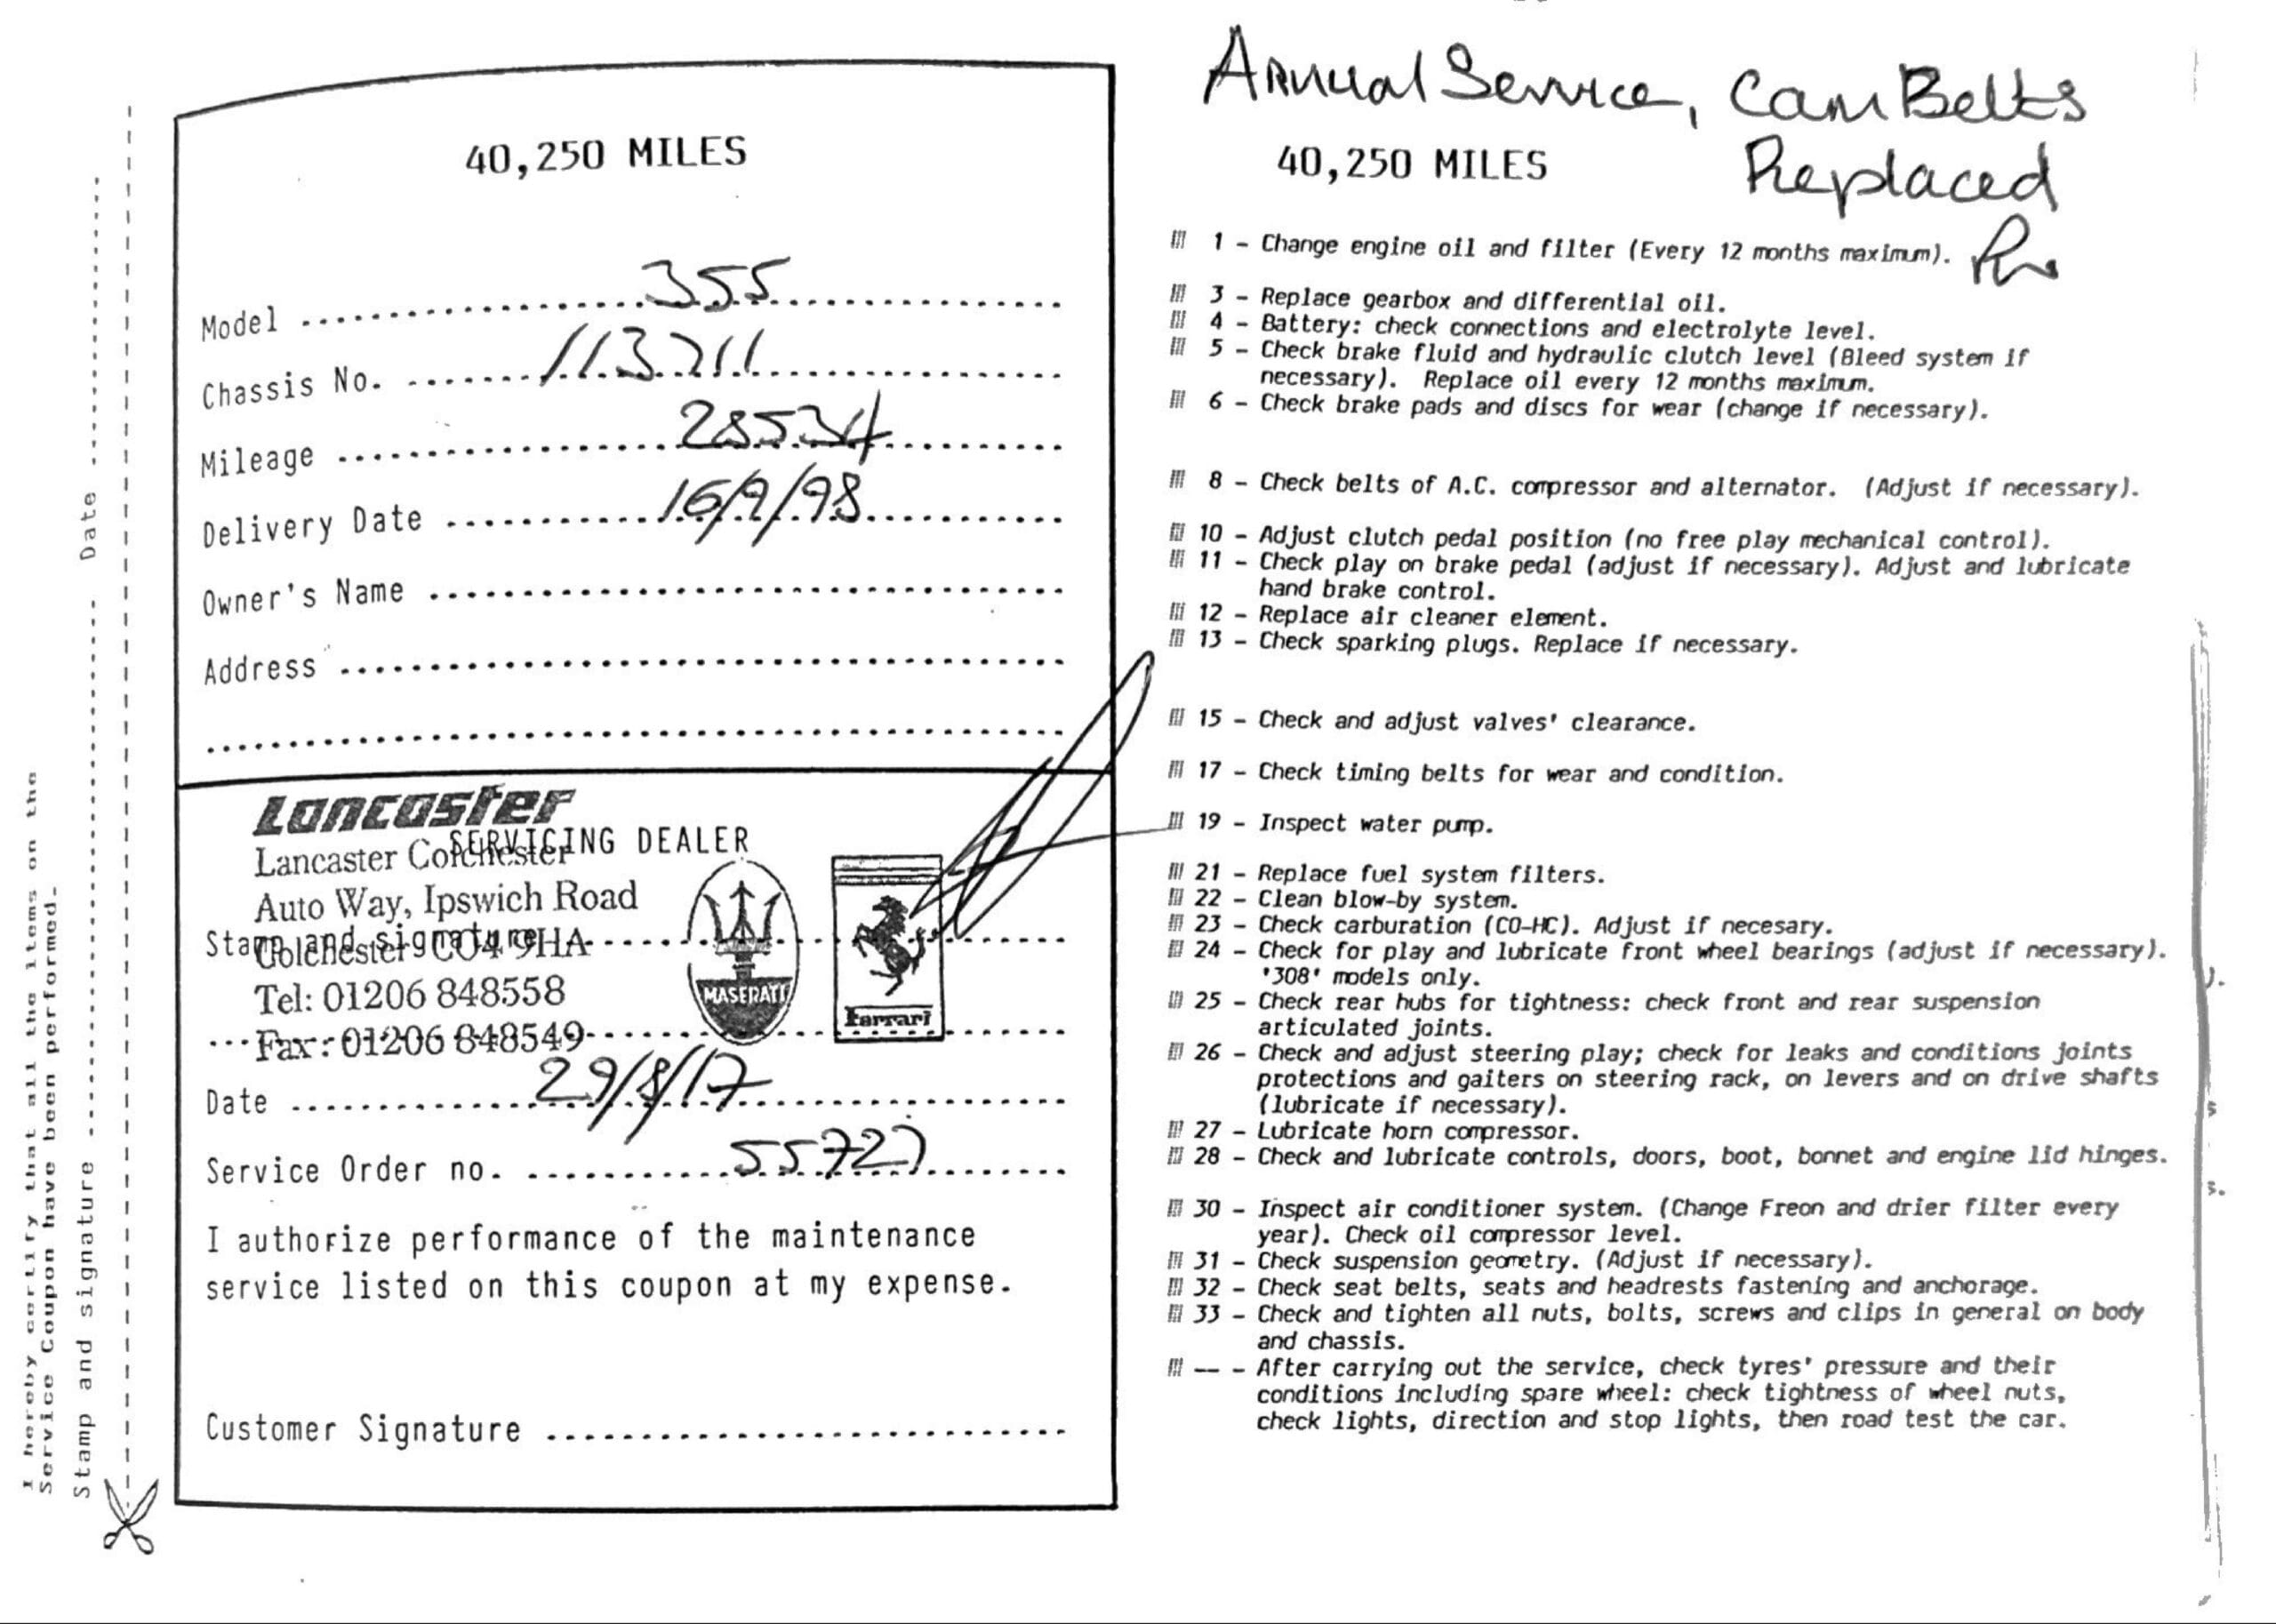 40,250 MILES
Model 355
Chassis No. 113211
Mileage 28534
Delivery Date 16/9/98
Owner's Name
Address
Lancaster
SERVICING DEALER
Lancaster Colchester
Auto Way, Ipswich Road
Stamp and signature
Colchester CO4 9HA
Tel: 01206 848558
Fax: 01206 848549
MASERATI
Ferrari
Date 29/8/17
Service Order no. 55727
I authorize performance of the maintenance
service listed on this coupon at my expense.
Customer Signature
I hereby certify that all the items on the
Service Coupon have been performed.
Stamp and signature Date
Annual Service, Cam Belts
40,250 MILES Replaced
1 - Change engine oil and filter (Every 12 months maximum).
3 - Replace gearbox and differential oil.
4 - Battery: check connections and electrolyte level.
5 - Check brake fluid and hydraulic clutch level (Bleed system if
necessary). Replace oil every 12 months maximum.
6 - Check brake pads and discs for wear (change if necessary).
8 - Check belts of A.C. compressor and alternator. (Adjust if necessary).
10 - Adjust clutch pedal position (no free play mechanical control).
11 - Check play on brake pedal (adjust if necessary). Adjust and lubricate
hand brake control.
12 - Replace air cleaner element.
13 - Check sparking plugs. Replace if necessary.
15 - Check and adjust valves' clearance.
17 - Check timing belts for wear and condition.
19 - Inspect water pump.
21 - Replace fuel system filters.
22 - Clean blow-by system.
23 - Check carburation (CO-HC). Adjust if necesary.
24 - Check for play and lubricate front wheel bearings (adjust if necessary).
'308' models only.
25 - Check rear hubs for tightness: check front and rear suspension
articulated joints.
26 - Check and adjust steering play; check for leaks and conditions joints
protections and gaiters on steering rack, on levers and on drive shafts
(lubricate if necessary).
27 - Lubricate horn compressor.
28 - Check and lubricate controls, doors, boot, bonnet and engine lid hinges.
30 - Inspect air conditioner system. (Change Freon and drier filter every
year). Check oil compressor level.
31 - Check suspension geometry. (Adjust if necessary).
32 - Check seat belts, seats and headrests fastening and anchorage.
33 - Check and tighten all nuts, bolts, screws and clips in general on body
and chassis.
-- - After carrying out the service, check tyres' pressure and their
conditions including spare wheel: check tightness of wheel nuts,
check lights, direction and stop lights, then road test the car.